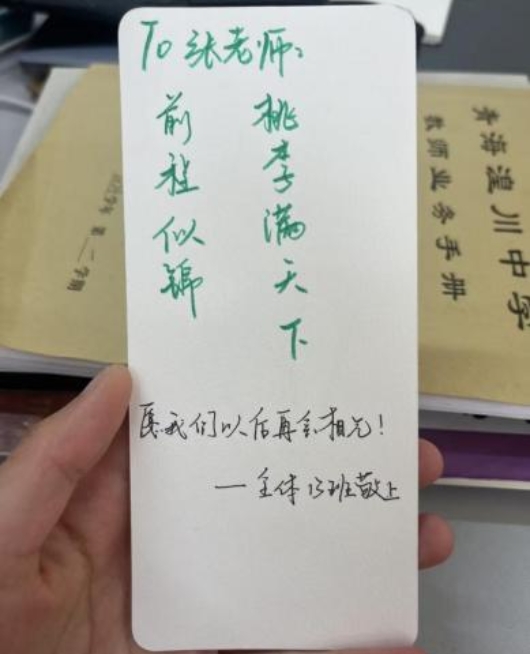 To 张老师:
桃李满天下
前程似锦
愿我们以后再会相见!
—全体13班敬上
青海湟川中学
教师业务手册
学年 第二学期